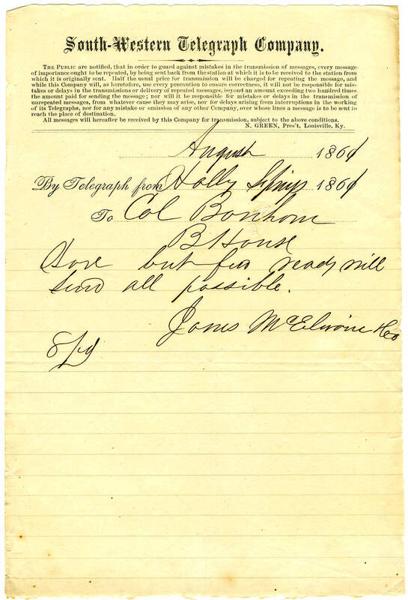 South-Western Telegraph Company.
THE PUBLIC are notified, that in order to guard against mistakes in the transmission of messages, every message
of importance ought to be repeated, by being sent back from the station at which it is to be received to the station from
which it is originally sent. Half the usual price for transmission will be charged for repeating the message, and
while this Company will, as heretofore, use every precaution to ensure correctness, it will not be responsible for mis-
takes or delays in the transmissions or delivery of repeated messages, beyond an amount exceeding two hundred times
the amount paid for sending the message; nor will it be responsible for mistakes or delays in the transmission of
unrepeated messages, from whatever cause they may arise, nor for delays arising from interruptions in the working
of its Telegraphs, nor for any mistake or omission of any other Company, over whose lines a message is to be sent to
reach the place of destination.
All messages will hereafter be received by this Company for transmission, subject to the above conditions.
N. GREEN, Pres't, Louisville, Ky.
August 1861
By Telegraph from Holly Springs 1861
To Col Bonham
B House
Have but few ready will
send all possible.
Jones McElwine &Co
8/pd